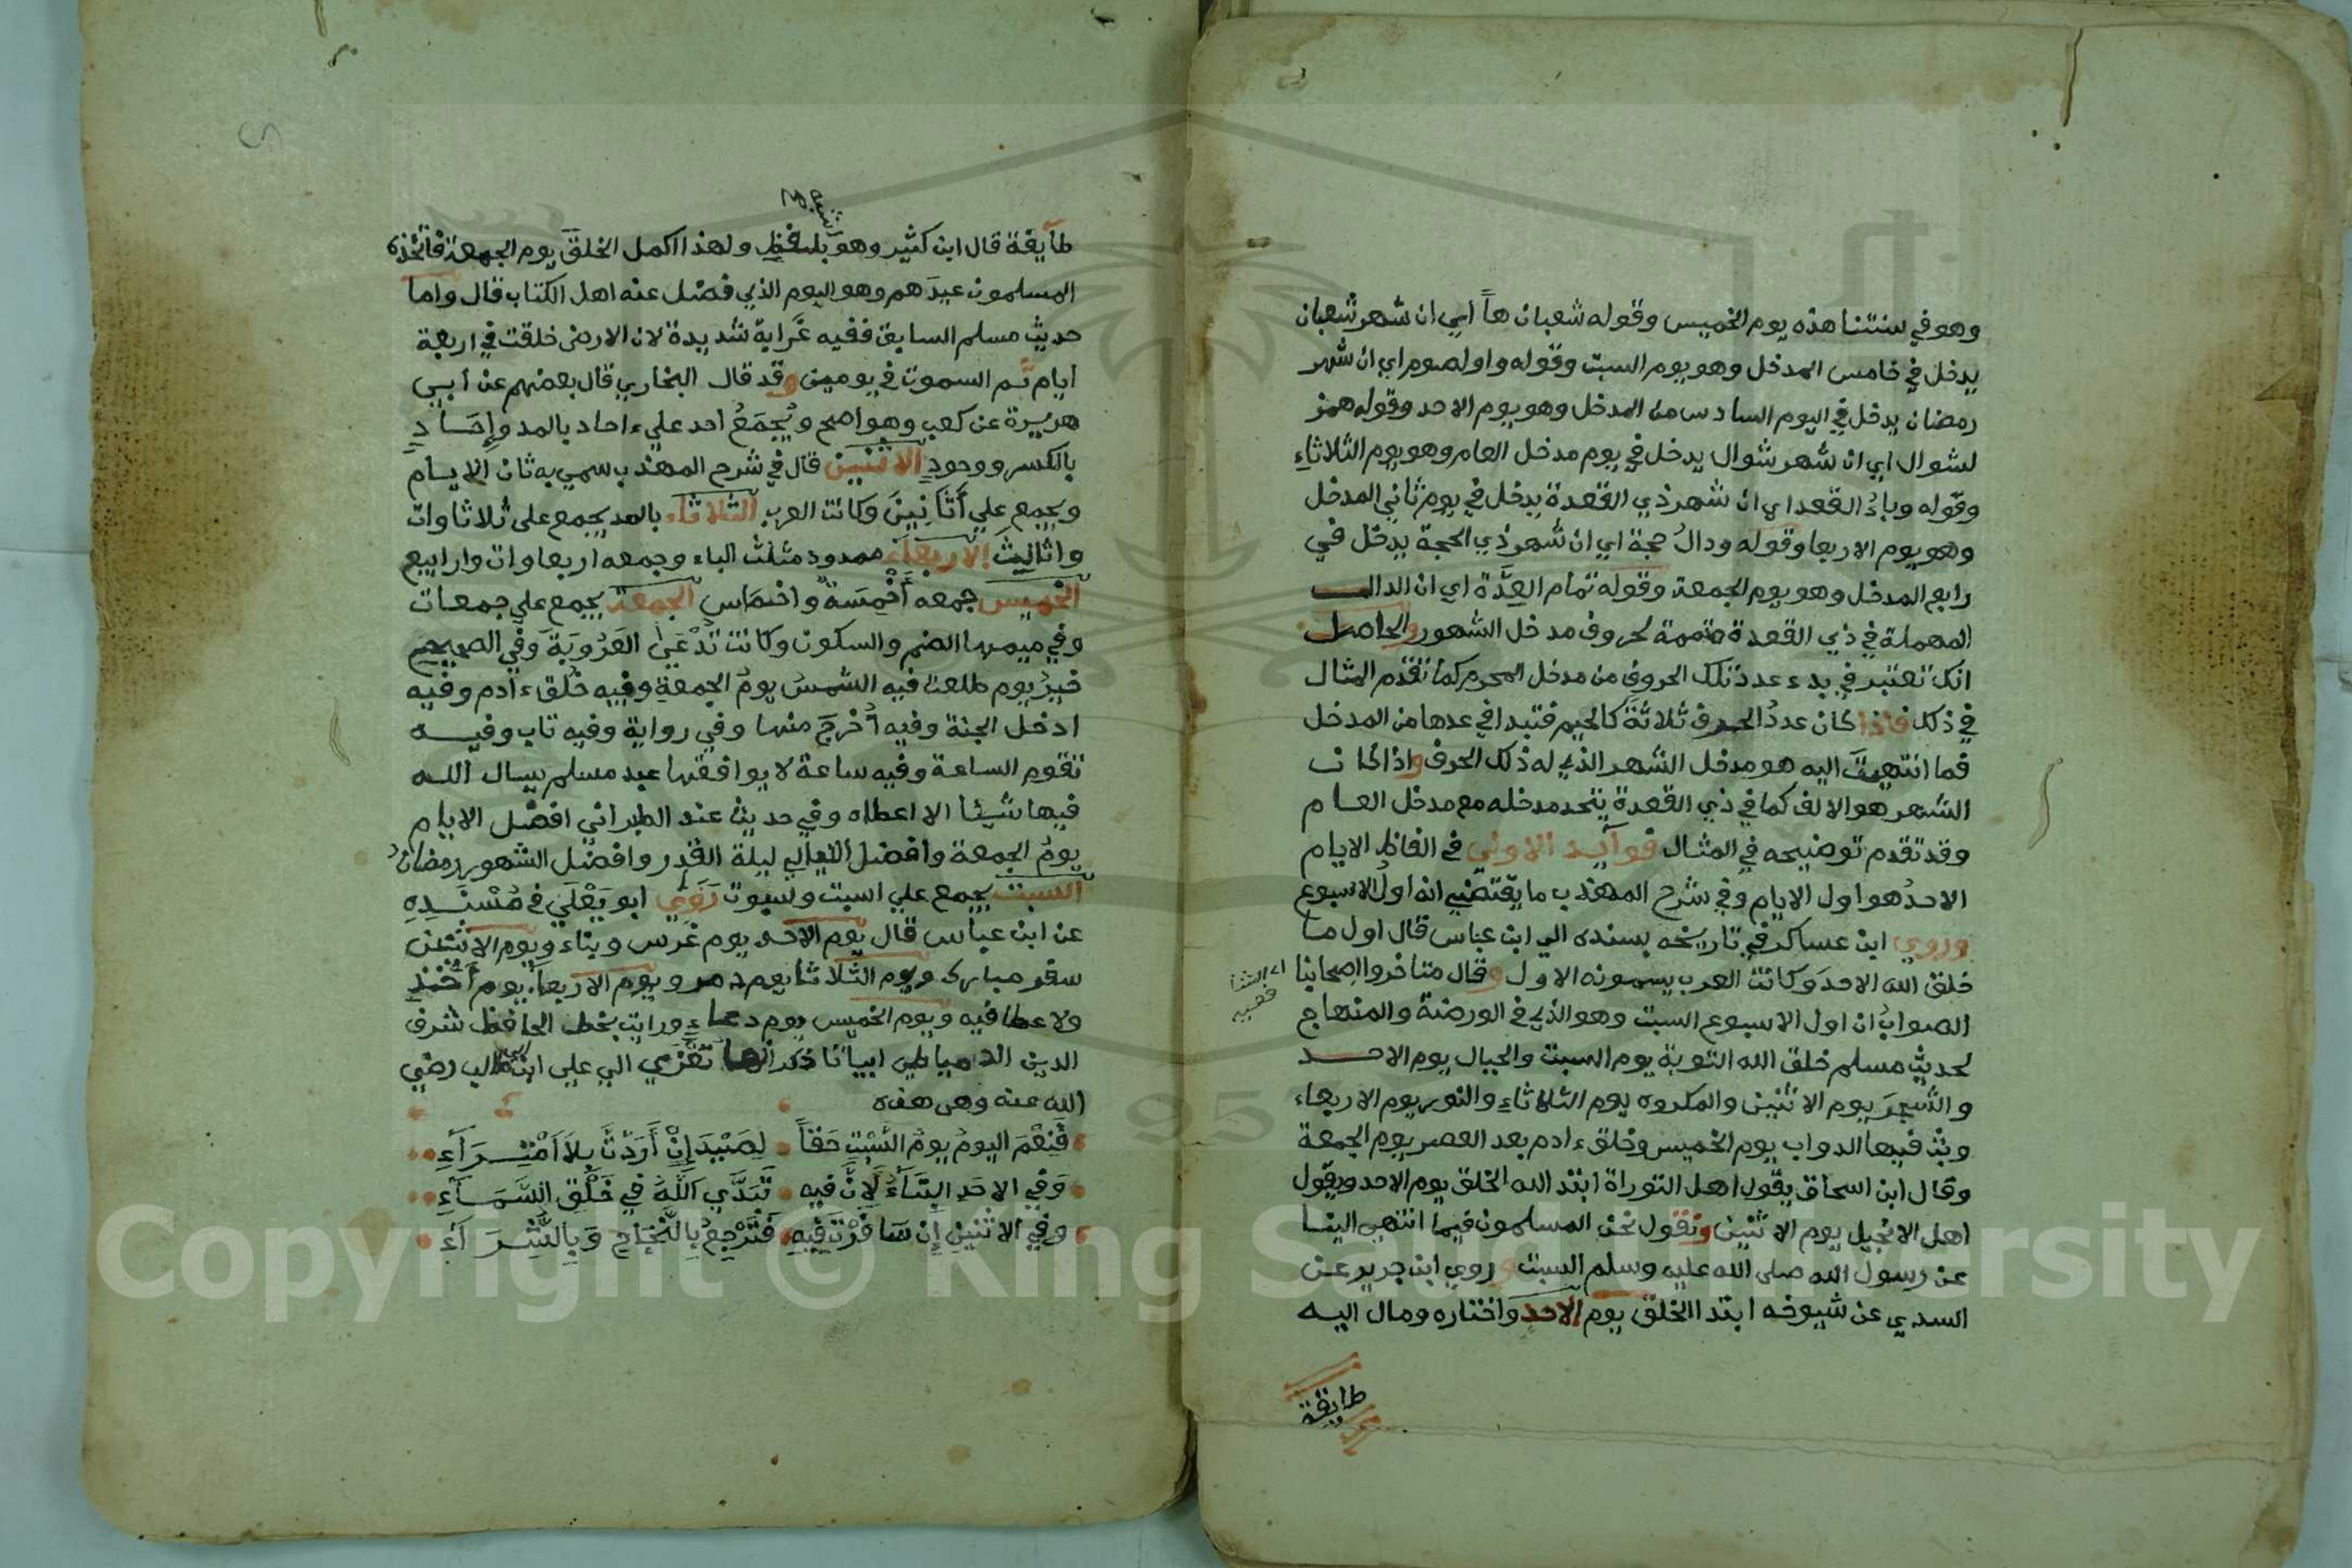 وهو في سنتنا هذه يوم الخميس وقوله شعبان هاً اي ان شهر شعبان
يدخل في خامس المدخل وهو يوم السبت وقوله واو لصوم اي ان شهر
رمضان يدخل في اليوم السادس من المدخل وهو يوم الاحد وقوله همز
لشوال اي ان شهر شوال يدخل في يوم مدخل العام وهو يوم الثلاثاءِ
وقوله وباءُ القعد اي ان شهر ذي القعدة يدخل في يوم ثاني المدخل
وهو يوم الاربعا وقوله ودالُ حجة اي ان شهر ذي الحجة يدخل في
رابع المدخل وهو يوم الجمعة وقوله تمام العِدَّة اي ان الدال
المهملة في ذي القعدة متممة لحروف مدخل الشهور والحاصل
انك تعتبر في بدء عدد تلك الحروف من مدخل المحرم كما تقدم المثال
في ذلك فاذا كان عددُ الحرف ثلاثةً كالجيم فتبدا في عدها من المدخل
فما انتهيتَ اليه هو مدخل الشهر الذي له ذلك الحرف واذا كان
الشهر هو الالف كما في ذي القعدة يتحد مدخله مع مدخل العام
وقد تقدم توضيحه في المثال فوايد الاولي في الفاظ الايام
الاحدُ هو اول الايام وفي شرح المهذب ما يقتضي انه اولُ الاسبوع
وروي ابن عساكر في تاريخه بسنده الي ابن عباس قال اول ما
خلق الله الاحدَ وكانت العرب يسمونه الاول وقال متاخروا اصحابنا
اي الشا
فعيه
الصوابُ ان اول الاسبوع السبت وهو الذي في الروضة والمنهاج
لحديث مسلم خلق الله التربة يوم السبت والجبال يوم الاحد
والشجرَ يوم الاثنين والمكروه يوم الثلاثاءِ والنور يوم الاربعاء
وبث فيها الدواب يوم الخميس وخلق ءادم بعد العصر يوم الجمعة
وقال ابن اسحاق يقول اهل التوراة ابتدا الله الخلق يوم الاحد ويقول
اهل الانجيل يوم الاثنين ونقول نحن المسلمون فيما انتهي الينا
عن رسول الله صلى الله عليه وسلم السبت وروي ابن جرير عن
السدي عن شيوخه ابتدا الخلق يوم الاحد واختاره ومال اليه
طايفة
طايفة قال ابن كثير وهو بلفظ ولهذا اكمل الخلق يوم الجمعة فاتخذه
المسلمون عيدَهم وهو اليوم الذي فضل عنه اهل الكتاب قال واما
حديث مسلم السابق ففيه غَرابة شديدة لان الارض خلقت في اربعة
ايام ثم السموت في يومين وقد قال البخاري قال بعضهم عن ابي
هريرة عن كعب وهو اصح ويُجمَعُ احد علي ءاحاد بالمد وإِحَادِ
بالكسر ووحودِ الاثنين قال في شرح المهذب سمي به ثان الايام
ويجمع علي أَثَانِينَ وكانت العرب الثلاثاء بالمد يجمع على ثلاثاوات
واثالِيثَ الاربعاء ممدود مثلث الباء وجمعه اربعاوات وارابيع
الخميس جمعه أَخْمِسَةٌ واخماس الجمعة يجمع علي جمعات
وفي ميمها الضم والسكون وكانت تُدْعَيٰ العَرُوبَةَ وفي الصحيح
خيرُ يوم طلعت فيه الشمسُ يومُ الجمعةِ وفيه خُلق ءادم وفيه
ادخل الجنة وفيه أُخْرِجَ منها وفي رواية وفيه تاب وفيه
تقوم الساعة وفيه ساعة لا يوافقها عبد مسلم يسال الله
فيها شيئا الا اعطاه وفي حديث عند الطبراني افضل الايام
يومُ الجمعة وافضل الليالي ليلة القدر وافضل الشهور رمضان
السبت يجمع علي اسبت وسبوت رَوَي ابو يَعْلَي في مُسْنَدِهِ
عن ابن عباس قال يوم الاحد يوم غرس وبناء ويوم الاثنين
سفر مبارك ويوم الثلاثا يوم دمر ويوم الاربعا يوم أَخْذٍ
ولا عطا فيه ويوم الخميس يوم دعاءٍ ورايت بخط الحافظ شرف
الدين الدمياطي ابياتا ذكر انها تعْزَي الي علي ابن طالب رضي
الله عنه وهي هذه
فَنِعْمَ اليومُ يومُ السَّبْتِ حَقاً لِصَيْدَ إِنْ أَرَدْتَّ بِلاَ اَمْتِرَآءِ
وَفي الاحَدِ البنَآءُ لِاَنَّ فيه تَبَدَّي اللهُ في خَلْقِ السَّمَآءِ
وفي الاثنينِ إِن سَافَرْتَ فيهِ فَتَرْجِعُ بِالنَّجَاحِ وَبِالثَّرَآءِ
Copyright © King Saud University